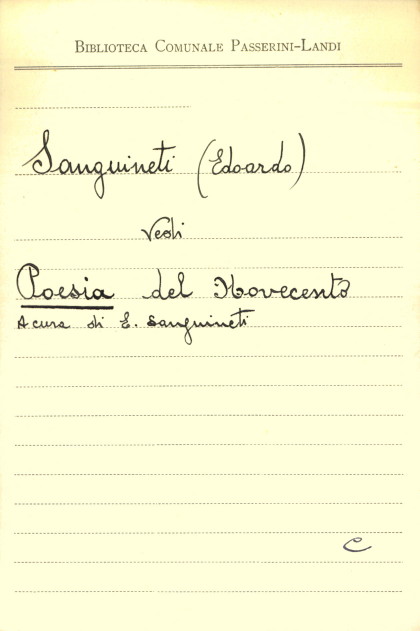 BIBLIOTECA COMUNALE PASSERINI-LANDI
Sanguineti (Edoardo)
Vedi
Poesia del Novecento
A cura di E. Sanguineti
C